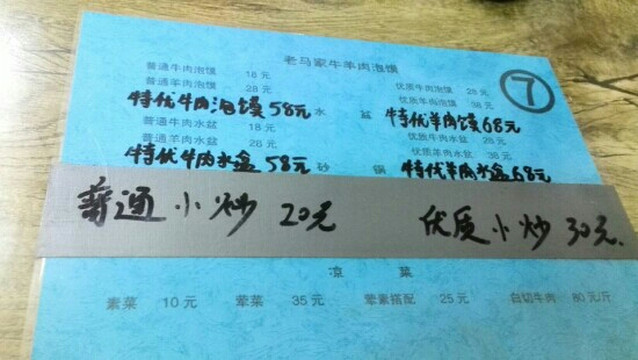 老马家牛羊肉泡馍
⑦
普通牛肉泡馍 18元 优质牛肉泡馍 28元
普通羊肉泡馍 28元 优质羊肉泡馍 38元
特优牛肉泡馍58元 特优羊肉馍68元
水 盆
普通牛肉水盆 18元 优质牛肉水盆 28元
普通羊肉水盆 28元 优质羊肉水盆 38元
特优牛肉水盆58元 特优羊肉水盆68元
砂 锅
普通小炒 20元 优质小炒 30元.
凉 菜
素菜 10元 荤菜 35元 荤素搭配 25元 白切牛肉 80元/斤